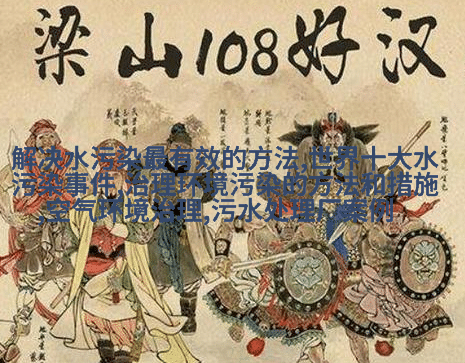 梁山108好汉
解决水污染最有效的方法,世界十大水
污染事件,治理环境污染的方法和措施
,空气环境治理,污水处理厂案例